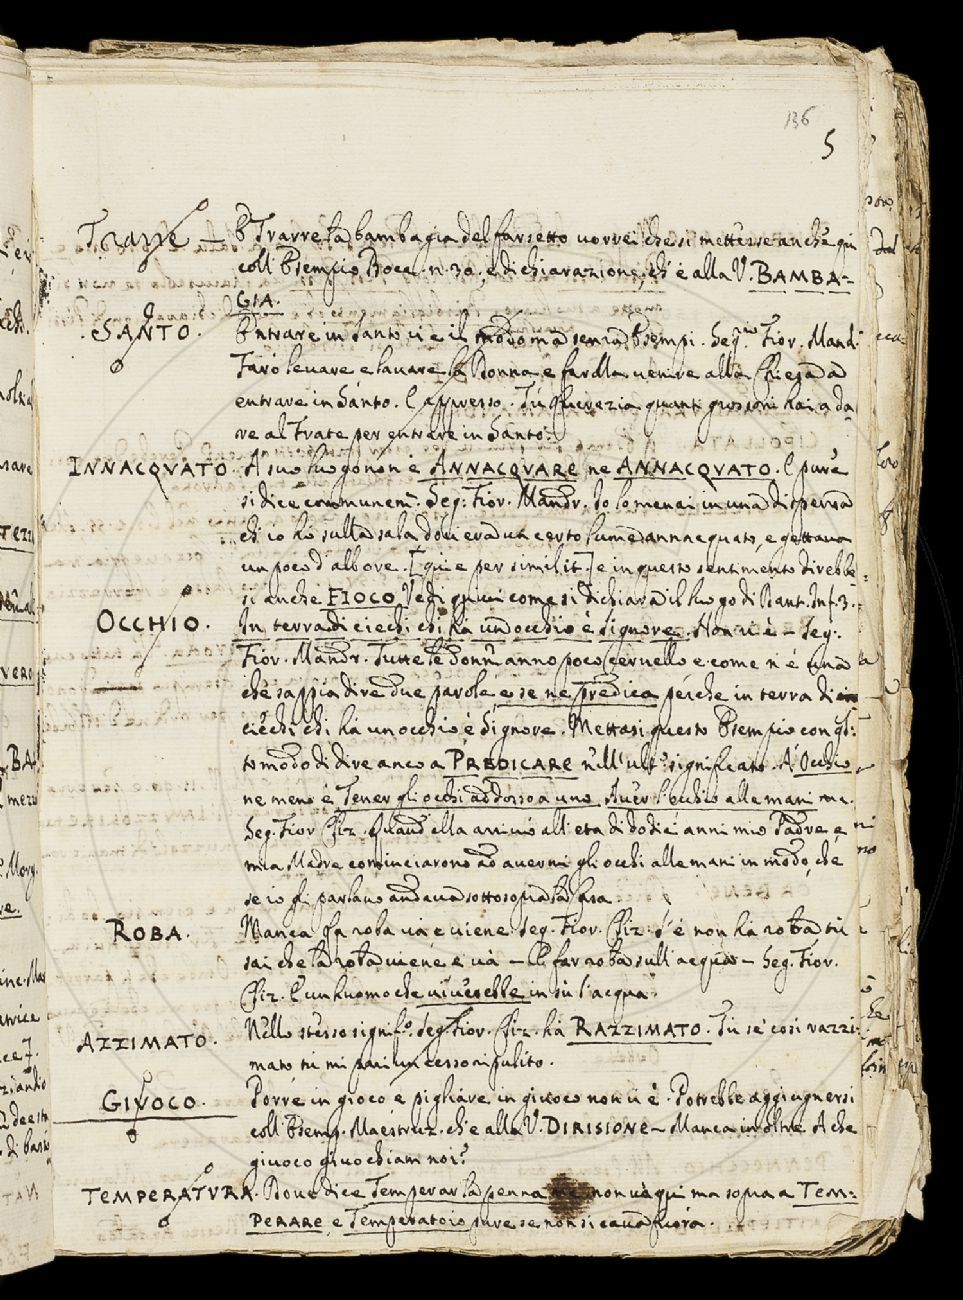 136
5
Trarre. E Trarre la bambagia del farsetto vorrei che si mettesse anche qui
coll' Esempio Bocc. n. 30. e dichiarazione, ch'è alla V. BAMBA=
GIA.
SANTO. Entrare in Santo vi è il modo ma senza Esempi. Seg.rio Fior. Mand.
Farò levare e lavare la Donna e farolla venire alla Chiesa a
entrare in Santo. E appresso. Tu Lucrezia quanti grossoni hai a da=
re al Frate per entrare in Santo?
INNACQVATO. A suo luogo non è ANNACQVARE ne ANNACQVATO. E pure
si dice communem. Seg: Fior. Mandr. Io lo menai in una dispensa
ch' io ho sulla sala dov' era un certo lume annacquato, e gettava
un poco d'albore. [qui è per similit.] e in questo sentimento direbbe=
si anche FIOCO Vedi quivi come si dichiara il luogo di Dant. Inf. 3.
OCCHIO. In terra di ciechi chi ha un occhio è Signore. Non v' è - Seg:
Fior. Mandr. Tutte le donn' anno poco cervello e come n' è una
che sappia dire due parole, e se ne predica perche in terra di
ciechi chi ha un occhio è Signore. Mettasi questo Esempio con q.
to modo di dire anco a PREDICARE nell' ult.o significato. A Occhio
ne meno è Tener gli occhi addosso a uno. Aver l'occhio alle mani ma.
Seg. Fior. Cliz. Quand' ella arrivò all' età di dodici anni mio Padre, e
mia Madre cominciarono ad avermi gli occhi alle mani in modo, che
se io gli parlavo andava sottosopra la Casa.
ROBA. Manca La roba va e viene. Seg. Fior. Cliz. S' è non ha roba tu
sai che la roba viene e va - E far roba sull' acqua - Seg. Fior.
Cliz. È un huomo che viverebbe in sù l'acqua.
AZZIMATO. Nello stesso signif.o Seg. Fior. Cliz. ha RAZZIMATO. Tu se' così razzi=
mato tu mi pari un cesso ripulito.
GIVOCO. Porre in gioco e pigliare in giuoco non v' è. Potrebbe aggiugnersi
coll' Esemp. Maestruz. ch' è alla V. DIRISIONE - Manca inoltre. A che
giuoco giuochiam noi?
TEMPERATVRA. Dove dice Temperar la penna non va qui ma sopra a TEM=
PERARE, e Temperatoio pure se non si cava fuora.